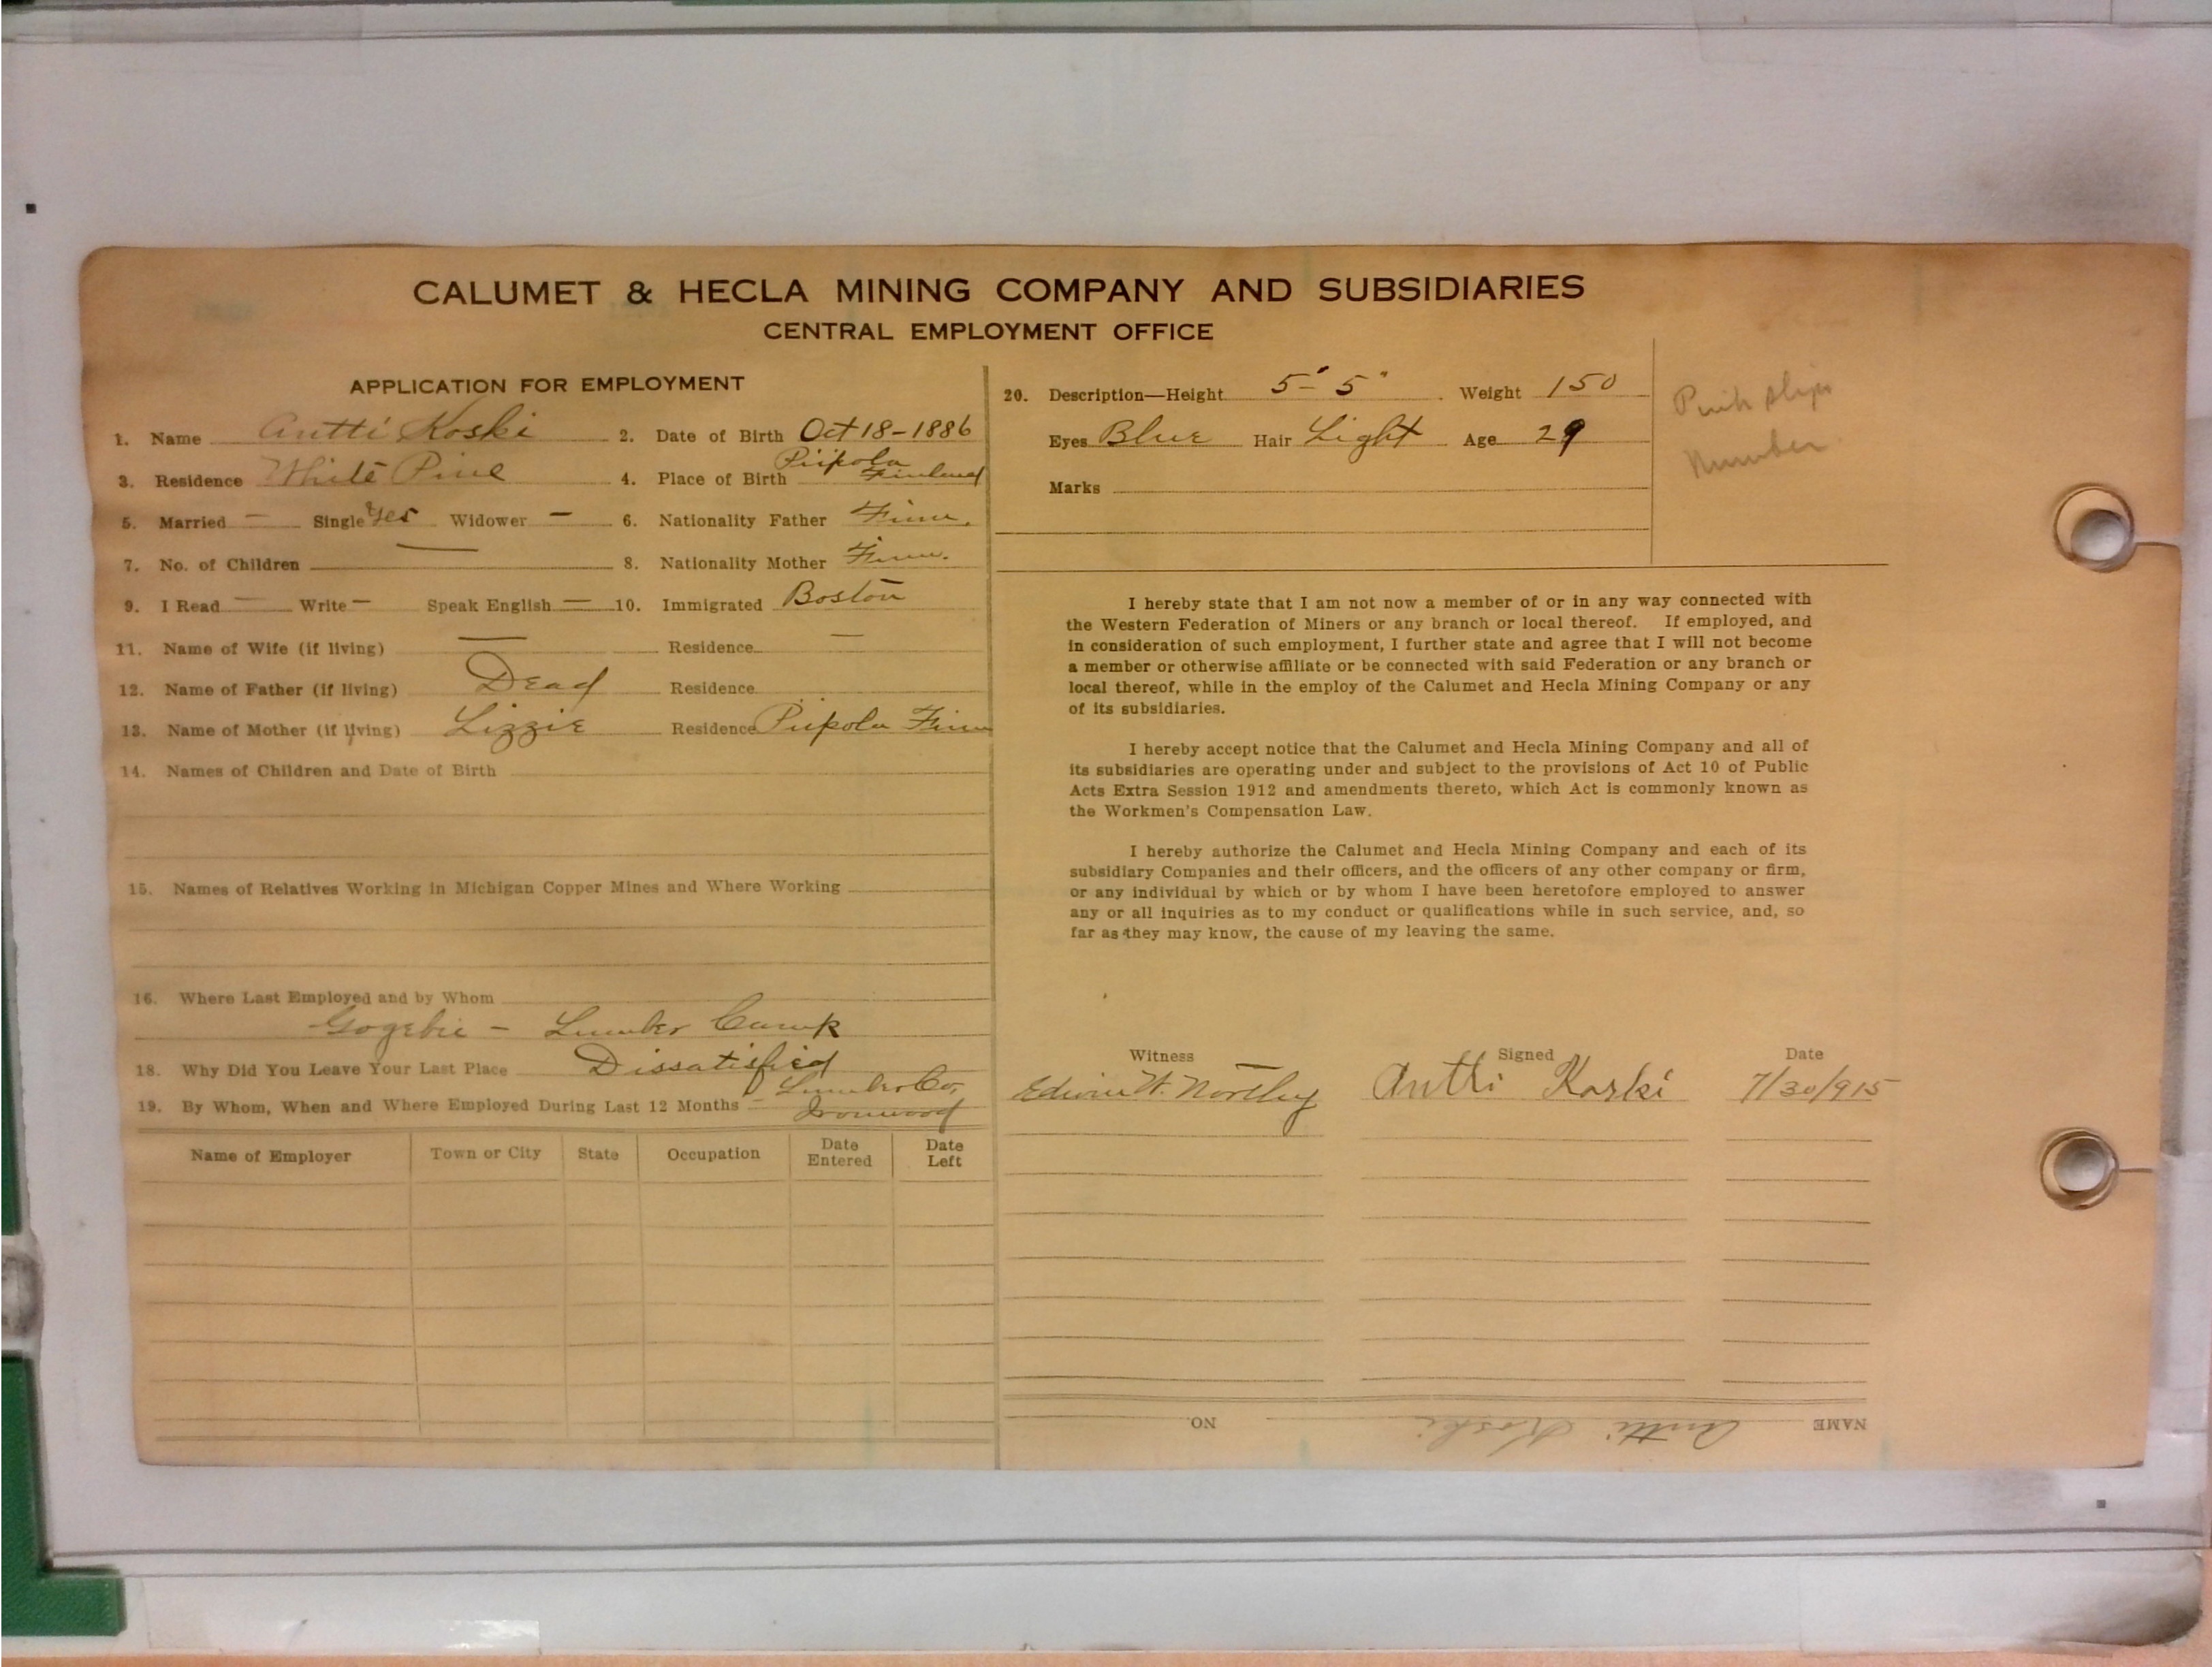 CALUMET & HECLA MINING COMPANY AND SUBSIDIARIES
CENTRAL EMPLOYMENT OFFICE
APPLICATION FOR EMPLOYMENT
1. Name Antti Koski 2. Date of Birth Oct 18-1886
3. Residence White Pine 4. Place of Birth Piipola Finland
5. Married — Single Yes Widower — 6. Nationality Father Finn.
7. No. of Children — 8. Nationality Mother Finn.
9. I Read — Write — Speak English — 10. Immigrated Boston
11. Name of Wife (if living) — Residence —
12. Name of Father (if living) Dead Residence
13. Name of Mother (if living) Lizzie Residence Piipola Finn
14. Names of Children and Date of Birth
15. Names of Relatives Working in Michigan Copper Mines and Where Working
16. Where Last Employed and by Whom
Gogebic - Lumber Camp
18. Why Did You Leave Your Last Place Dissatisfied
19. By Whom, When and Where Employed During Last 12 Months - Lumber Co, Ironwood
Name of Employer Town or City State Occupation Date Entered Date Left
20. Description—Height 5' 5" Weight 150
Eyes Blue Hair Light Age 29
Marks
Pink slip
Number
I hereby state that I am not now a member of or in any way connected with
the Western Federation of Miners or any branch or local thereof. If employed, and
in consideration of such employment, I further state and agree that I will not become
a member or otherwise affiliate or be connected with said Federation or any branch or
local thereof, while in the employ of the Calumet and Hecla Mining Company or any
of its subsidiaries.
I hereby accept notice that the Calumet and Hecla Mining Company and all of
its subsidiaries are operating under and subject to the provisions of Act 10 of Public
Acts Extra Session 1912 and amendments thereto, which Act is commonly known as
the Workmen's Compensation Law.
I hereby authorize the Calumet and Hecla Mining Company and each of its
subsidiary Companies and their officers, and the officers of any other company or firm,
or any individual by which or by whom I have been heretofore employed to answer
any or all inquiries as to my conduct or qualifications while in such service, and, so
far as they may know, the cause of my leaving the same.
Witness Signed Date
Edwin W. Northey Antti Koski 7/30/915
NAME Antti Koski NO.